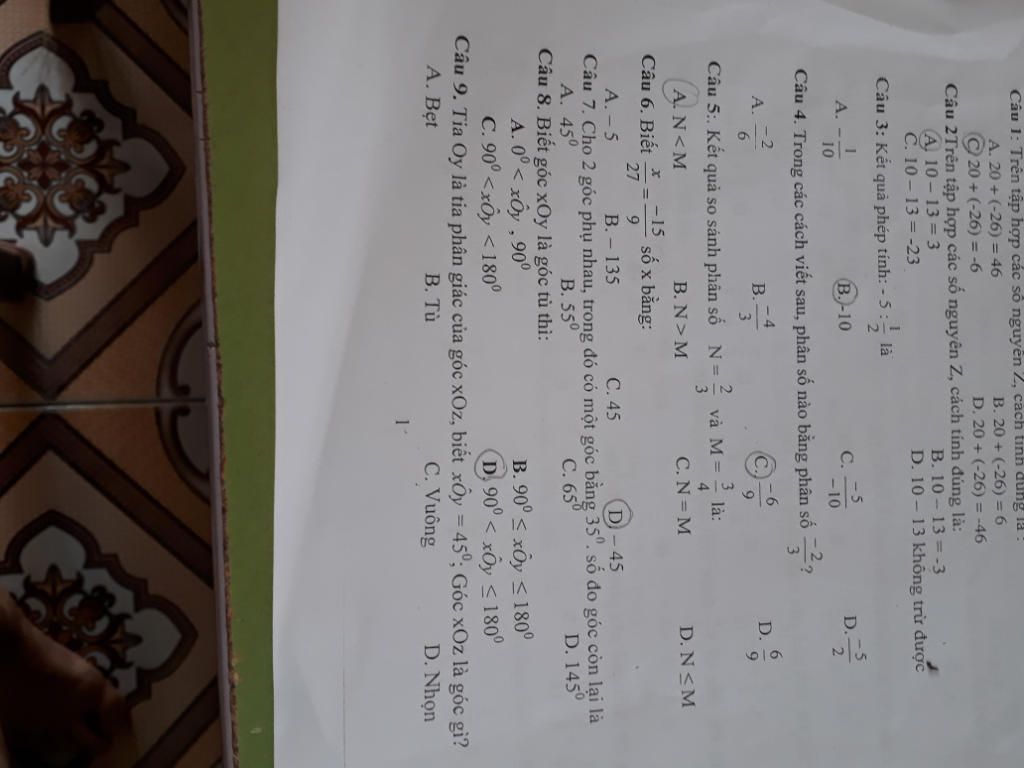 Câu 1: Trên tập hợp các số nguyên Z, cách tính đúng là :
A. 20 + (-26) = 46 B. 20 + (-26) = 6
C 20 + (-26) = -6 D. 20 + (-26) = -46
Câu 2Trên tập hợp các số nguyên Z, cách tính đúng là:
A 10 – 13 = 3 B. 10 – 13 = -3
C. 10 – 13 = -23 D. 10 – 13 không trừ được
Câu 3: Kết quả phép tính:- 5 : 1/2 là
A. – 1/10 B. -10 C. -5/-10 D. -5/2
Câu 4. Trong các cách viết sau, phân số nào bằng phân số -2/3 ?
A. -2/6 B. -4/3 C. -6/9 D. 6/9
Câu 5:. Kết quả so sánh phân số N = 2/3 và M = 3/4 là:
A. N < M B. N > M C. N = M D. N ≤ M
Câu 6. Biết x/27 = -15/9 số x bằng:
A. – 5 B. – 135 C. 45 D – 45
Câu 7. Cho 2 góc phụ nhau, trong đó có một góc bằng 35⁰. số đo góc còn lại là
A. 45⁰ B. 55⁰ C. 65⁰ D. 145⁰
Câu 8. Biết góc xOy là góc tù thì:
A. 0⁰ < xÔy , 90⁰ B. 90⁰ ≤ xÔy ≤ 180⁰
C. 90⁰ < xÔy < 180⁰ D. 90⁰ < xÔy ≤ 180⁰
Câu 9. Tia Oy là tia phân giác của góc xOz, biết xÔy = 45⁰; Góc xOz là góc gì?
A. Bẹt B. Tù C. Vuông D. Nhọn
1